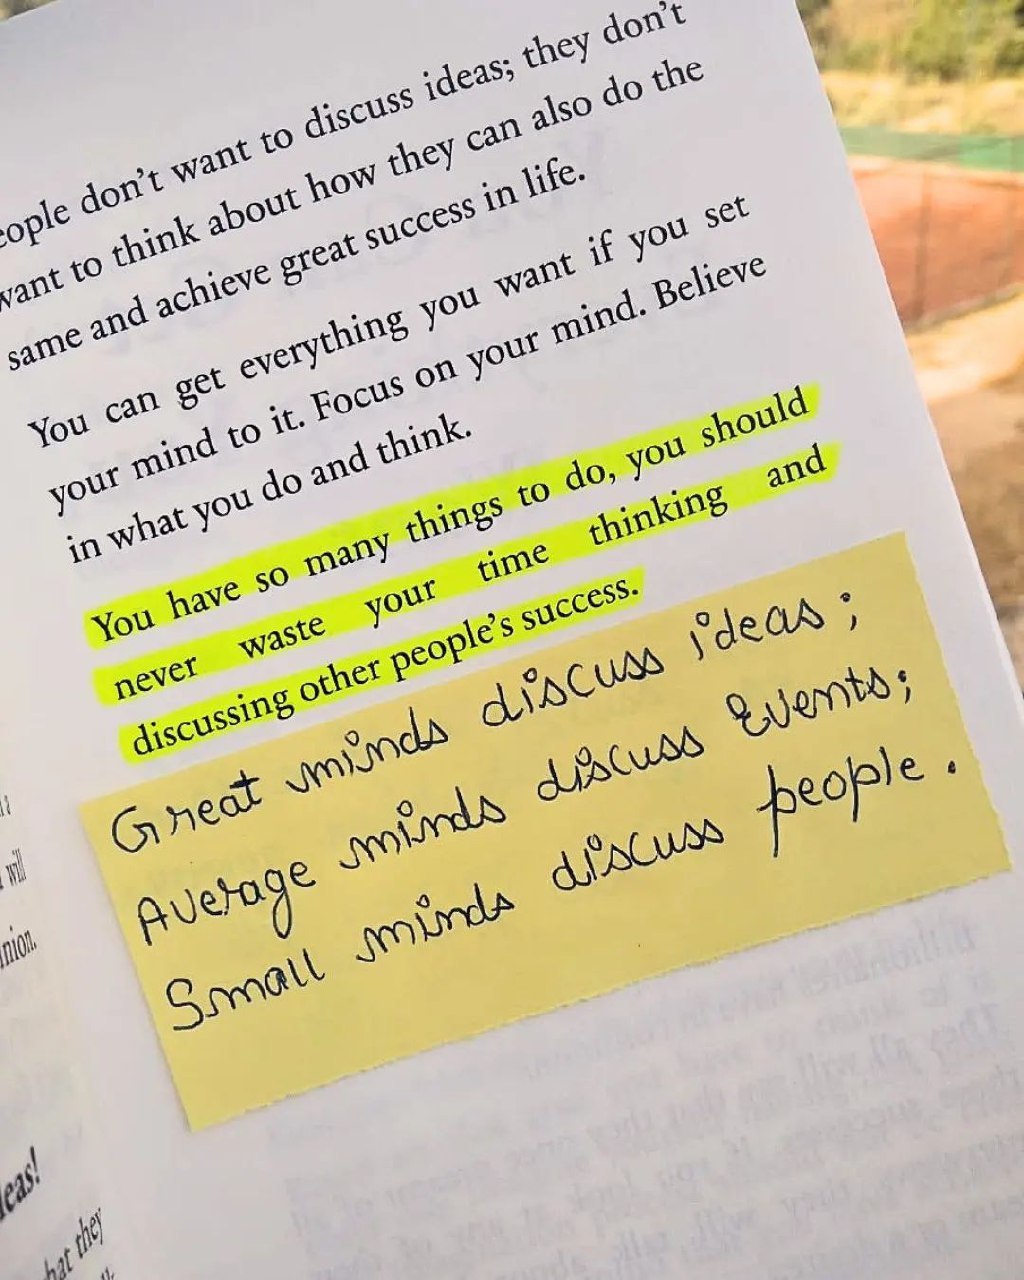 people don't want to discuss ideas; they don't
want to think about how they can also do the
same and achieve great success in life.
You can get everything you want if you set
your mind to it. Focus on your mind. Believe
in what you do and think.
You have so many things to do, you should
never waste your time thinking and
discussing other people's success.
Great minds discuss ideas;
Average minds discuss Events;
Small minds discuss people.
will
nion.
eas!
hat they